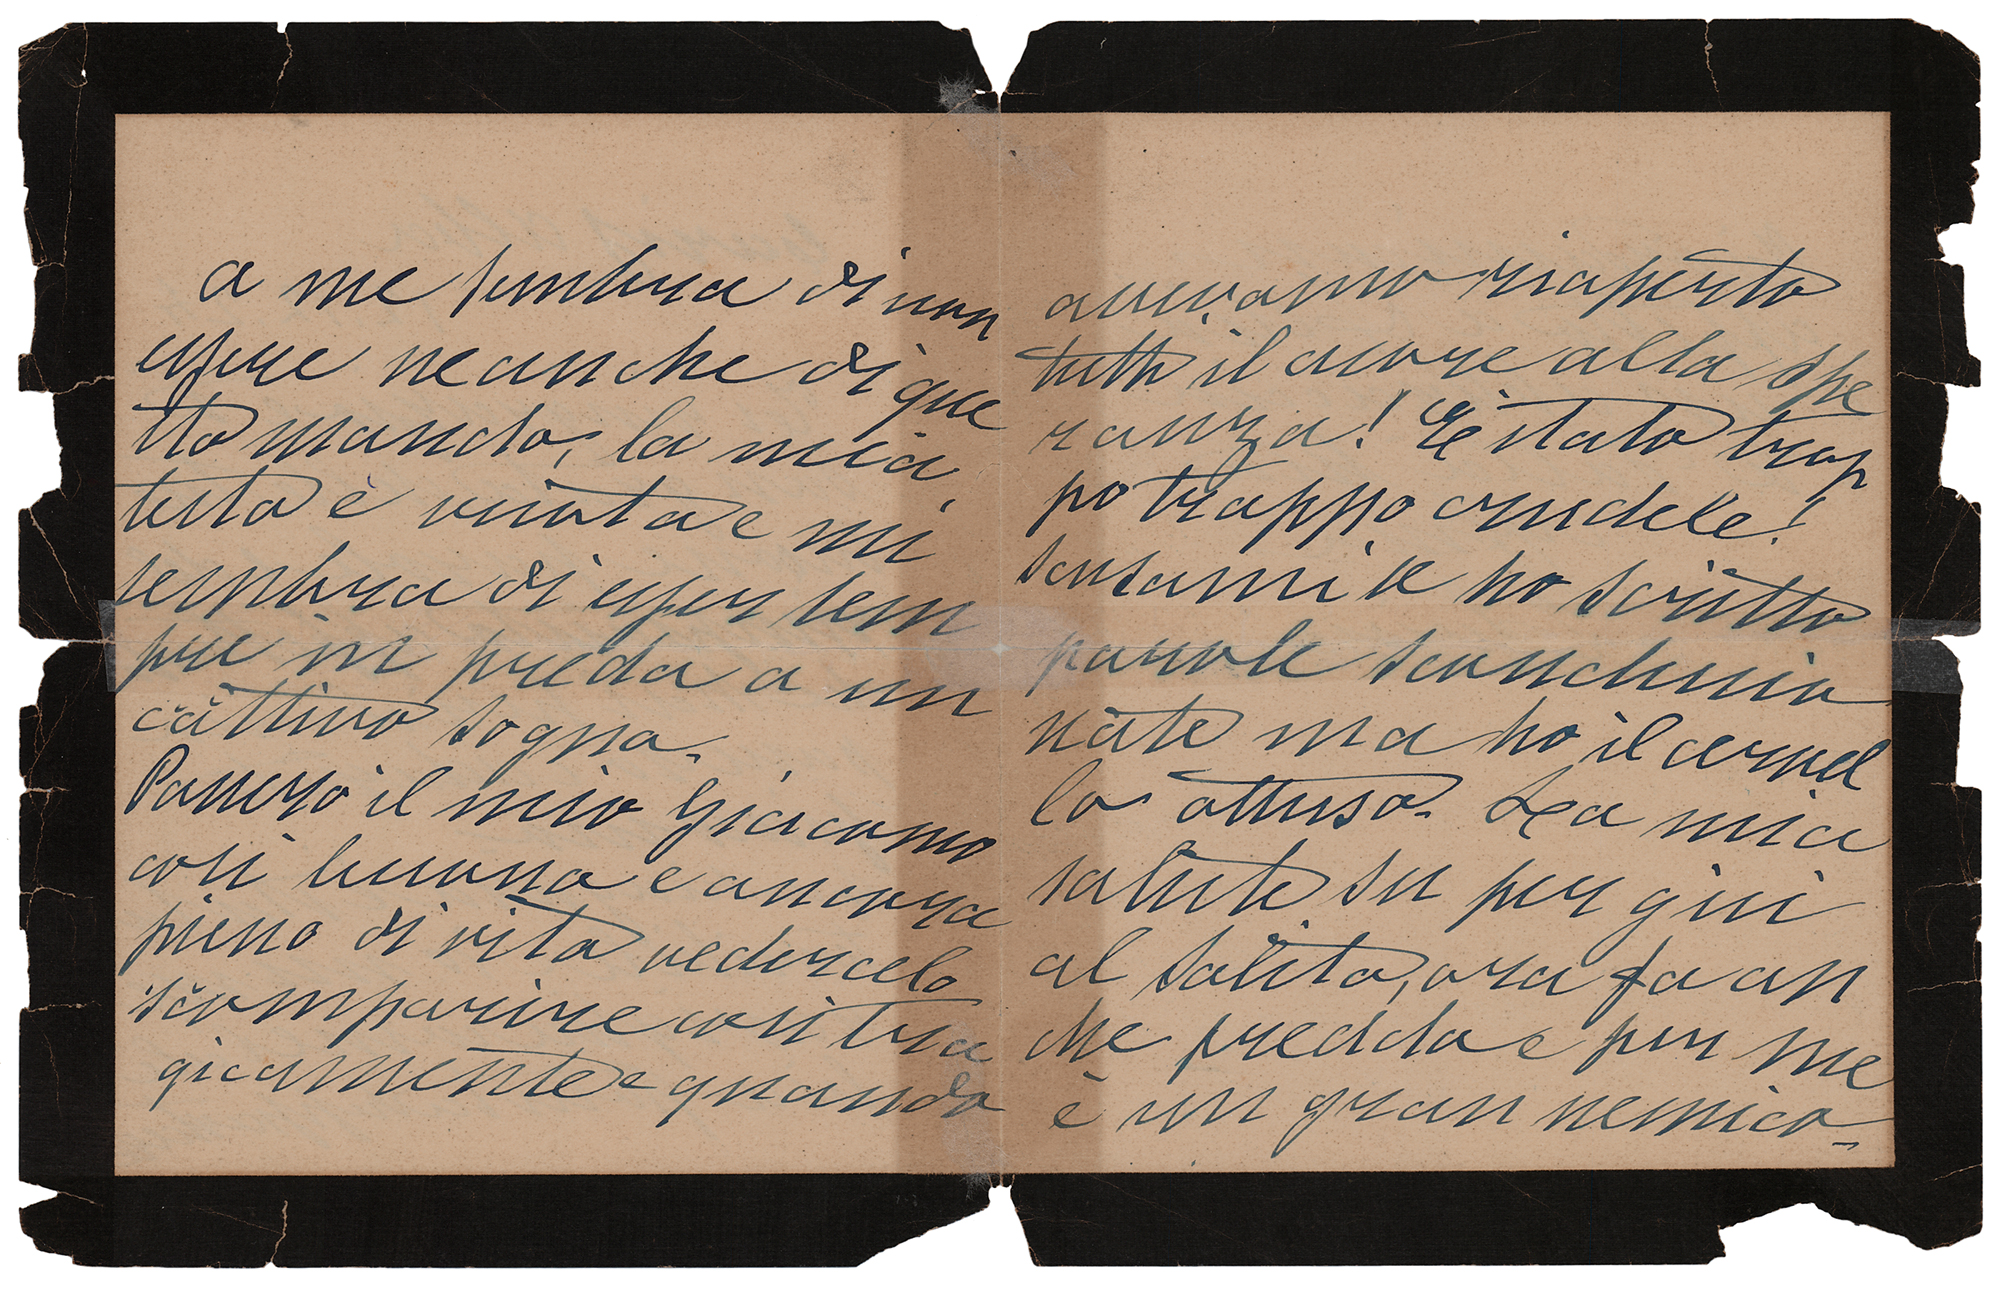 a me sembra di non
essere neanche di que
sto mondo, la mia
testa è vuota e mi
sembra di esser sem
pre in preda a un
cattivo sogno.
Povero il mio Giacomo
così buono e ancora
pieno di vita vedercelo
scomparire così tra
gicamente e quando
avevamo riaperto
tutti il cuore alla spe
ranza! È stato trop
po troppo crudele!
Scusami se ho scritto
parole sconclusio
nate ma ho il cervel
lo ottuso. La mia
salute su per giù
al solito, ora fa an
che freddo e per me
è un gran nemico-